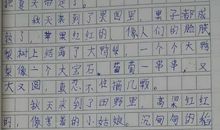 秋天来到了果园里，果子都成
熟了，苹果红红的，像人们的脸蛋
梨树上结满了大鸭梨，一个个大鸭
梨像一个大宝石。葡萄一串串，又
大又圆，真忍不住摘几颗。
秋天来到了田野里，高粱红红
的，像害羞的小姑娘。沉甸甸的稻